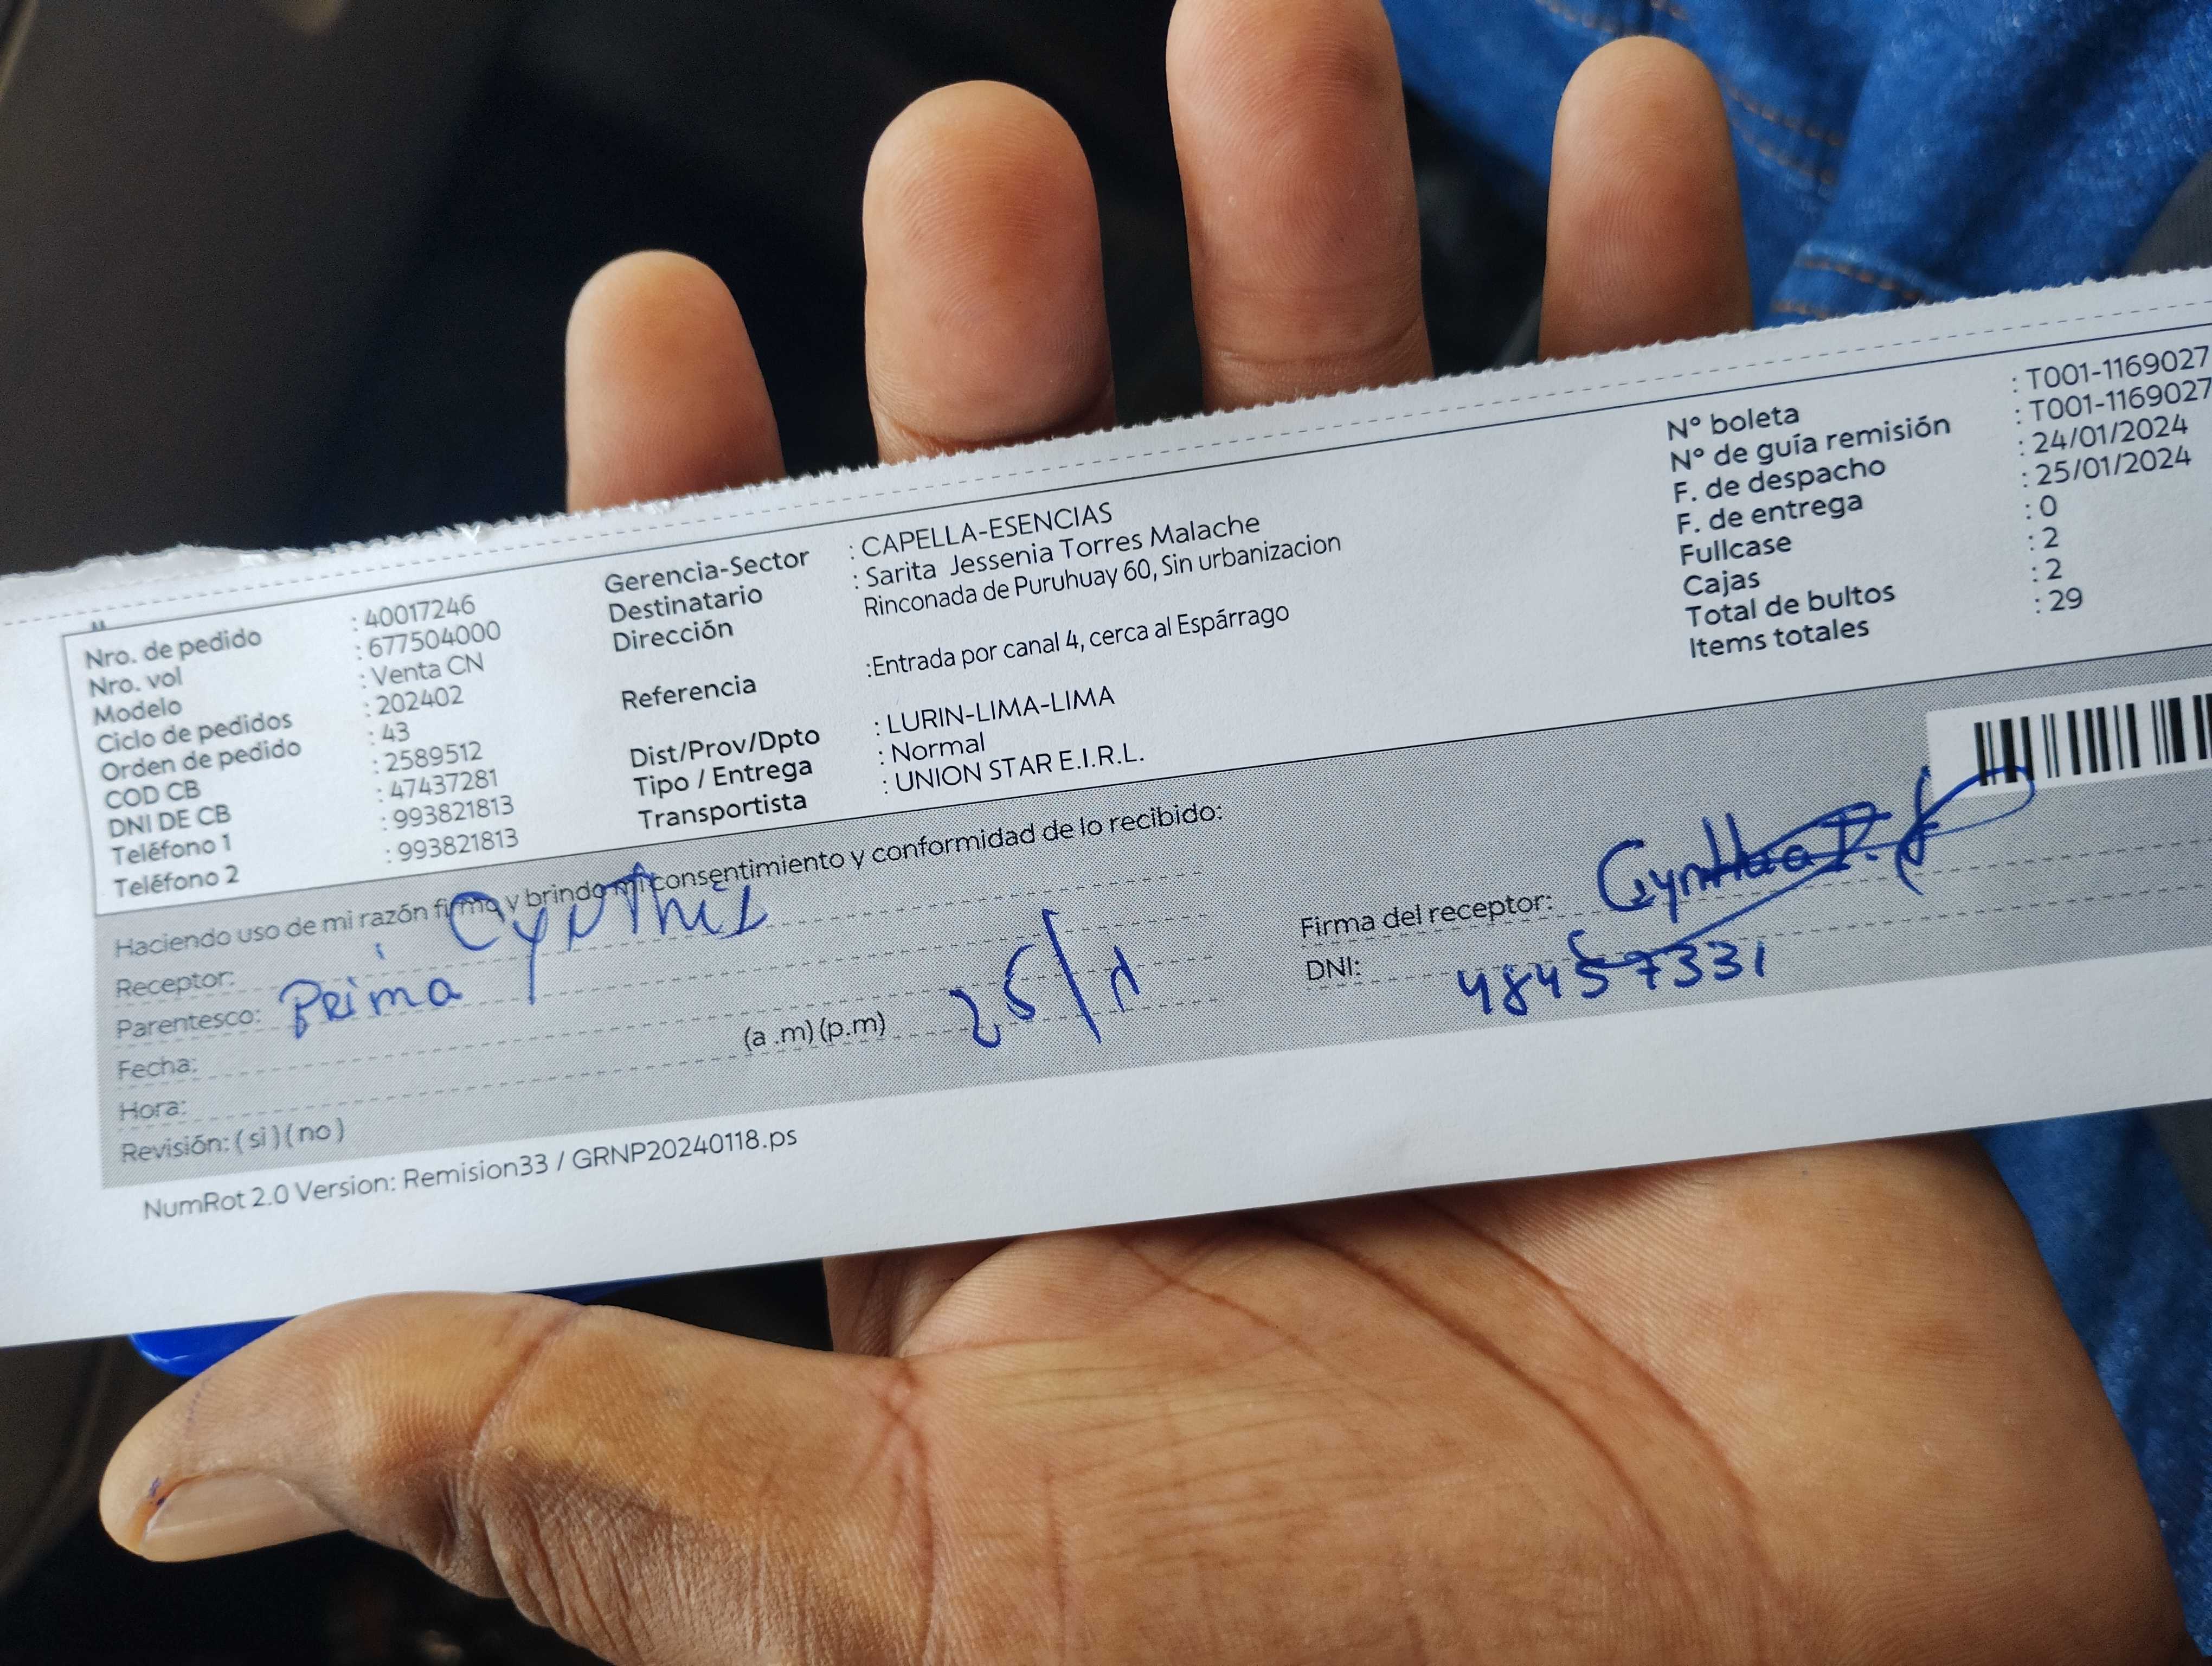 Nro. de pedido : 40017246
Nro. vol : 677504000
Modelo : Venta CN
Ciclo de pedidos : 202402
Orden de pedido : 43
COD CB : 2589512
DNI DE CB : 47437281
Teléfono 1 : 993821813
Teléfono 2 : 993821813
Gerencia-Sector : CAPELLA-ESENCIAS
Destinatario : Sarita Jessenia Torres Malache
Dirección Rinconada de Puruhuay 60, Sin urbanizacion
Referencia :Entrada por canal 4, cerca al Espárrago
Dist/Prov/Dpto : LURIN-LIMA-LIMA
Tipo / Entrega : Normal
Transportista : UNION STAR E.I.R.L.
N° boleta : T001-1169027
N° de guía remisión : T001-1169027
F. de despacho : 24/01/2024
F. de entrega : 25/01/2024
Fullcase : 0
Cajas : 2
Total de bultos : 2
Items totales : 29
Haciendo uso de mi razón firmo y brindo mi consentimiento y conformidad de lo recibido:
Receptor: Cynthia
Parentesco: Prima
Fecha:
Hora: (a .m) (p.m) 25/1
Revisión: ( si ) ( no )
Firma del receptor: Cynthia
DNI: 48457331
NumRot 2.0 Version: Remision33 / GRNP20240118.ps